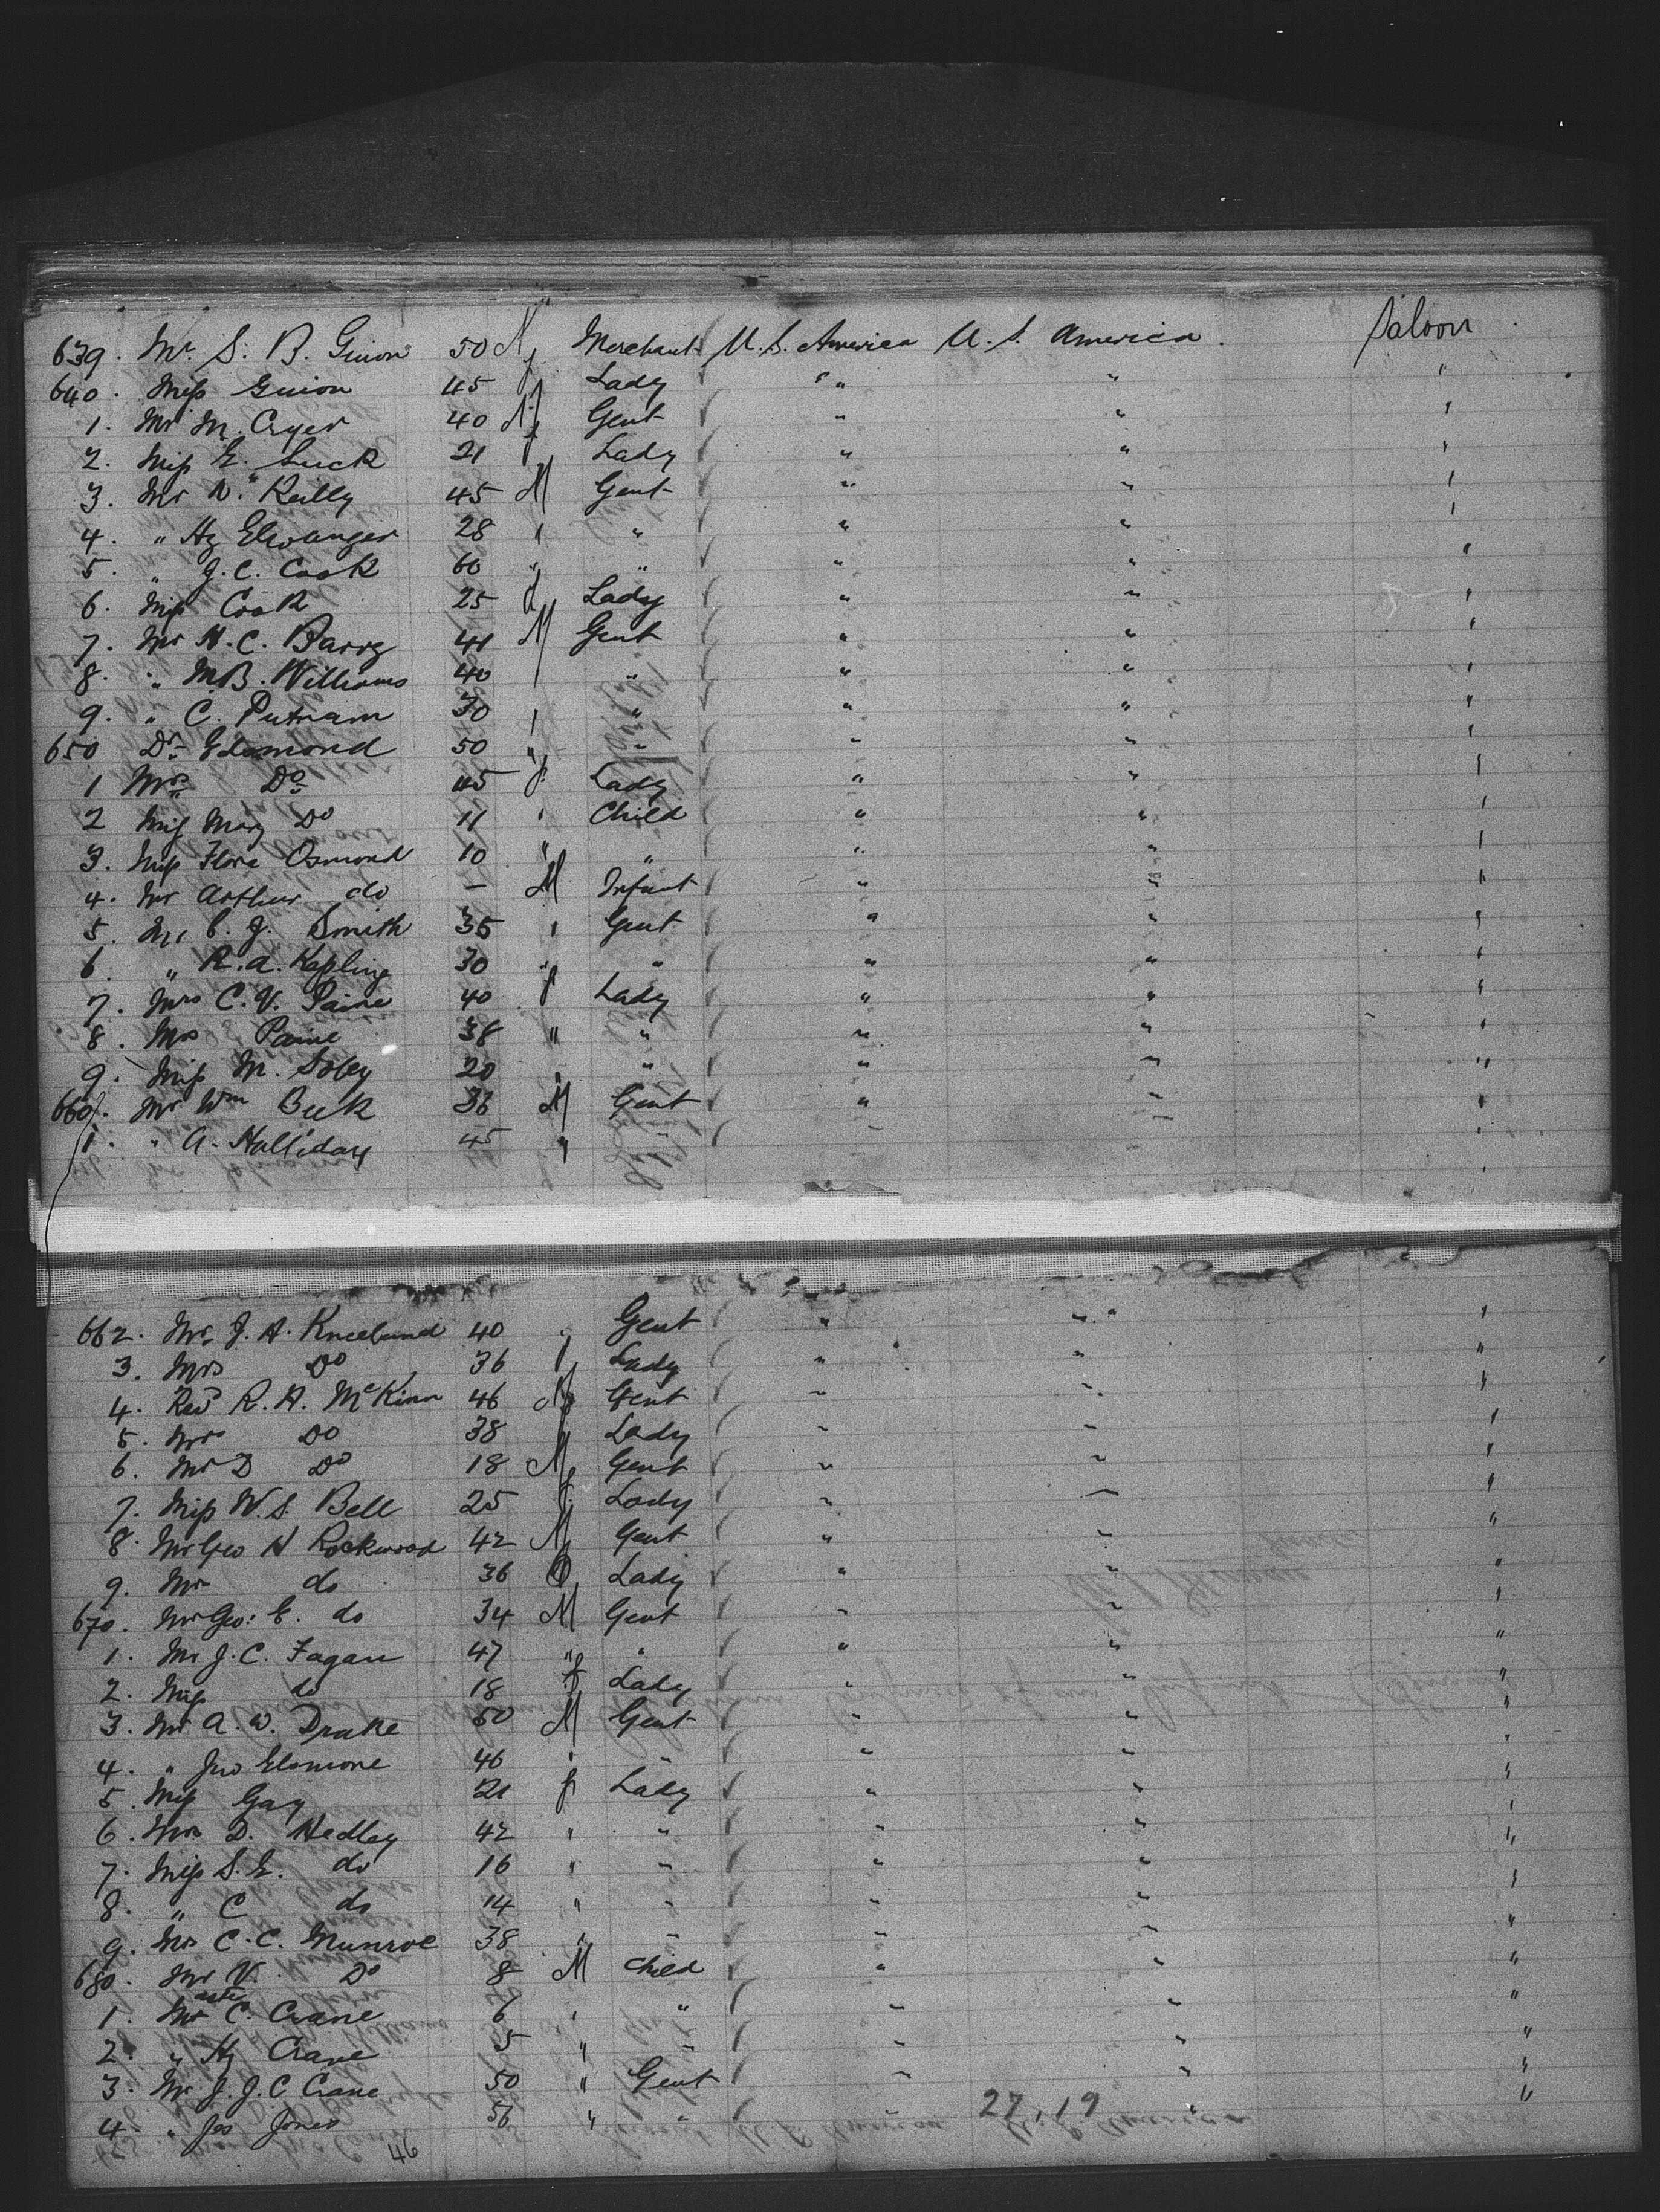 639. Mr. S. B. Guion 50 M Merchant U. S. America U. S. America. Saloon
640. Miss Guion 45 f Lady " " "
1. Mr M. Cryer 40 M Gent " " "
2. Miss E. Luck 21 f Lady " " "
3. Mr N. Reilly 45 M Gent " " "
4. " Hy Elwanger 28 " " " " "
5. " J. C. Cook 60 " " " " "
6. Miss Cook 25 f Lady " " "
7. Mr H. C. Barry 41 M Gent " " "
8. " M B. Williams 40 " " " "
9. " C. Putnam 30 " " " " "
650 Dr Esmond 50 " " " " "
1 Mrs Do 45 f Lady " " "
2 Miss Mary Do 11 " Child " " "
3. Miss Flora Osmond 10 " " " " "
4. Mr Arthur do – M Infant " " "
5. Mr C. J. Smith 35 " Gent " " "
6. " R. A. Kapling 30 " " " " "
7. Mrs C. V. Paine 40 f Lady " " "
8. Mrs Paine 38 " " " " "
9. Miss M. Sobey 20 " " " " "
660. Mr Wm Beek 36 M Gent " " "
1. " A. Halliday 45 " " " " "
662. Mr J. A. Kneeland 40 " Gent " " "
3. Mrs Do 36 f Lady " " "
4. Revd R. A. McKinn 46 M Gent " " "
5. Mrs Do 38 f Lady " " "
6. Mr D Do 18 M Gent " " "
7. Miss W. S. Bell 25 f Lady " " "
8. Mr Geo H Rockwood 42 M Gent " " "
9. Mrs do 36 Lady " " "
670. Mr Geo: E. do 34 M Gent " " "
1. Mr J. C. Fagan 47 " " " " "
2. Miss do 18 f Lady " " "
3. Mr A. W. Drake 50 M Gent " " "
4. " Jno Elsmore 46 " " " " "
5. Miss Gay 21 f Lady " " "
6. Mrs D. Hedley 42 " " " " "
7. Miss S. E. do 16 " " " " "
8. " C do 14 " " " " "
9. Mrs C. C. Munroe 38 " " " " "
680. Mr V. Do 8 M Child " " "
1. Master C. Crane 6 " " " " "
2. " Hy Crane 5 " " " " "
3. Mr J. J. C Crane 50 " Gent " " "
4. " Jas Jones 56 " " " " "
27.19
46